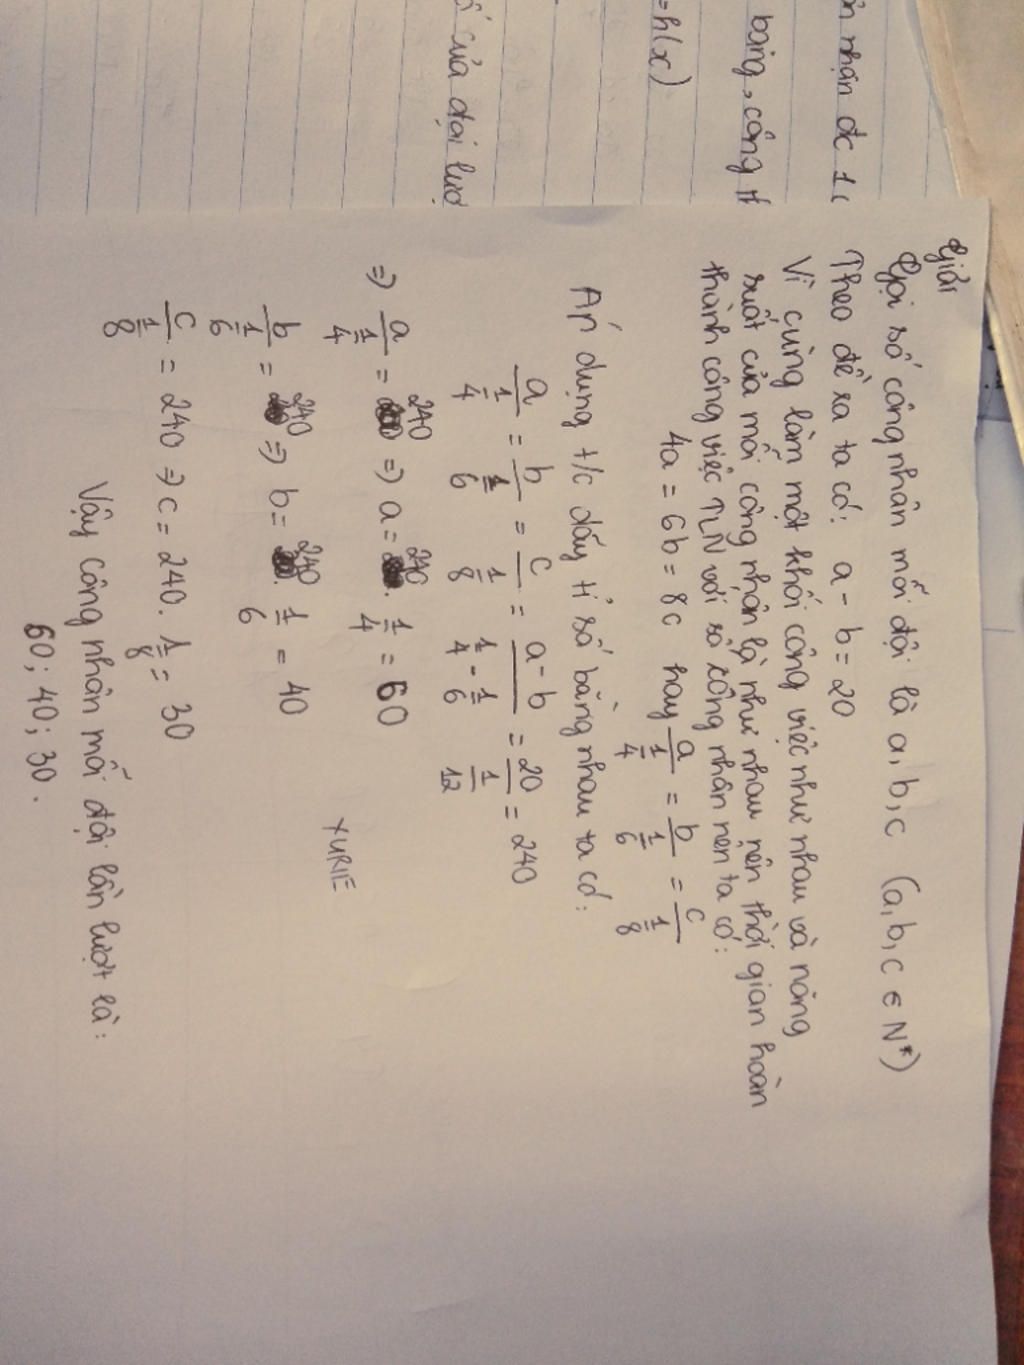 n nhận đc 1
bảng, công th
=h(x)
ố của đại lượ
Giải
Gọi số công nhân mỗi đội là a, b, c (a, b, c ∈ N*)
Theo đề ra ta có: a - b = 20
Vì cùng làm một khối công việc như nhau và năng
suất của mỗi công nhân là như nhau nên thời gian hoàn
thành công việc TLN với số công nhân nên ta có:
4a = 6b = 8c hay a/(1/4) = b/(1/6) = c/(1/8)
Áp dụng t/c dãy tỉ số bằng nhau ta có:
a/(1/4) = b/(1/6) = c/(1/8) = (a-b)/(1/4 - 1/6) = 20/(1/12) = 240
⇒ a/(1/4) = 240 ⇒ a = 240 . 1/4 = 60
b/(1/6) = 240 ⇒ b = 240 . 1/6 = 40
YURIE
c/(1/8) = 240 ⇒ c = 240 . 1/8 = 30
Vậy công nhân mỗi đội lần lượt là:
60; 40; 30.